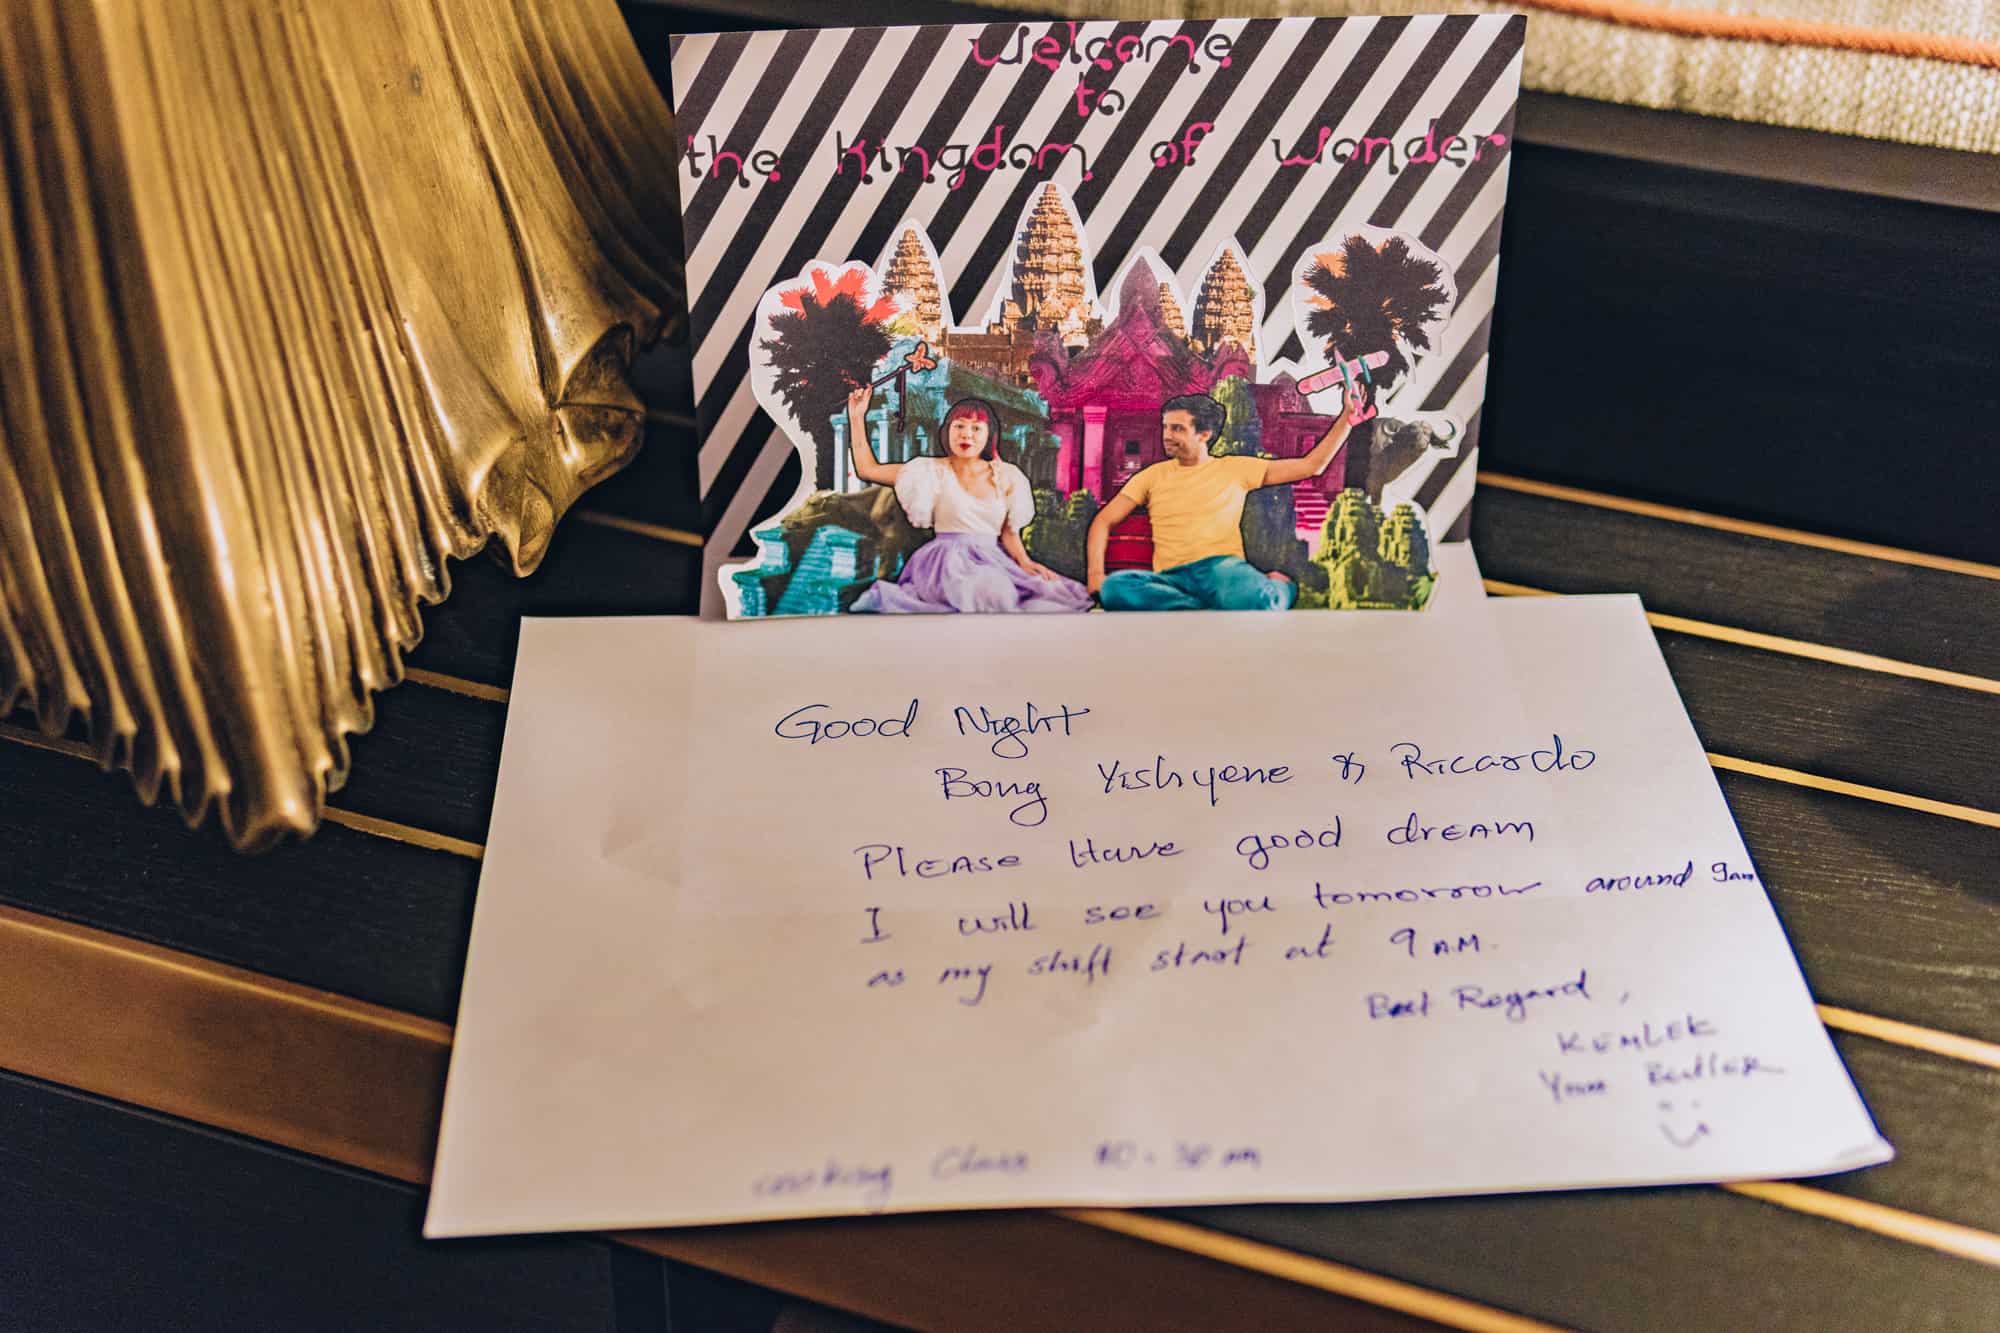 welcome
to
the kingdom of wonder
Good Night
Bong Yishyene & Ricardo
Please Have good dream
I will see you tomorrow around 9am
as my shift start at 9 A.M.
Best Regard,
KEMLEK
Your Butler
cooking Class 10:30 am